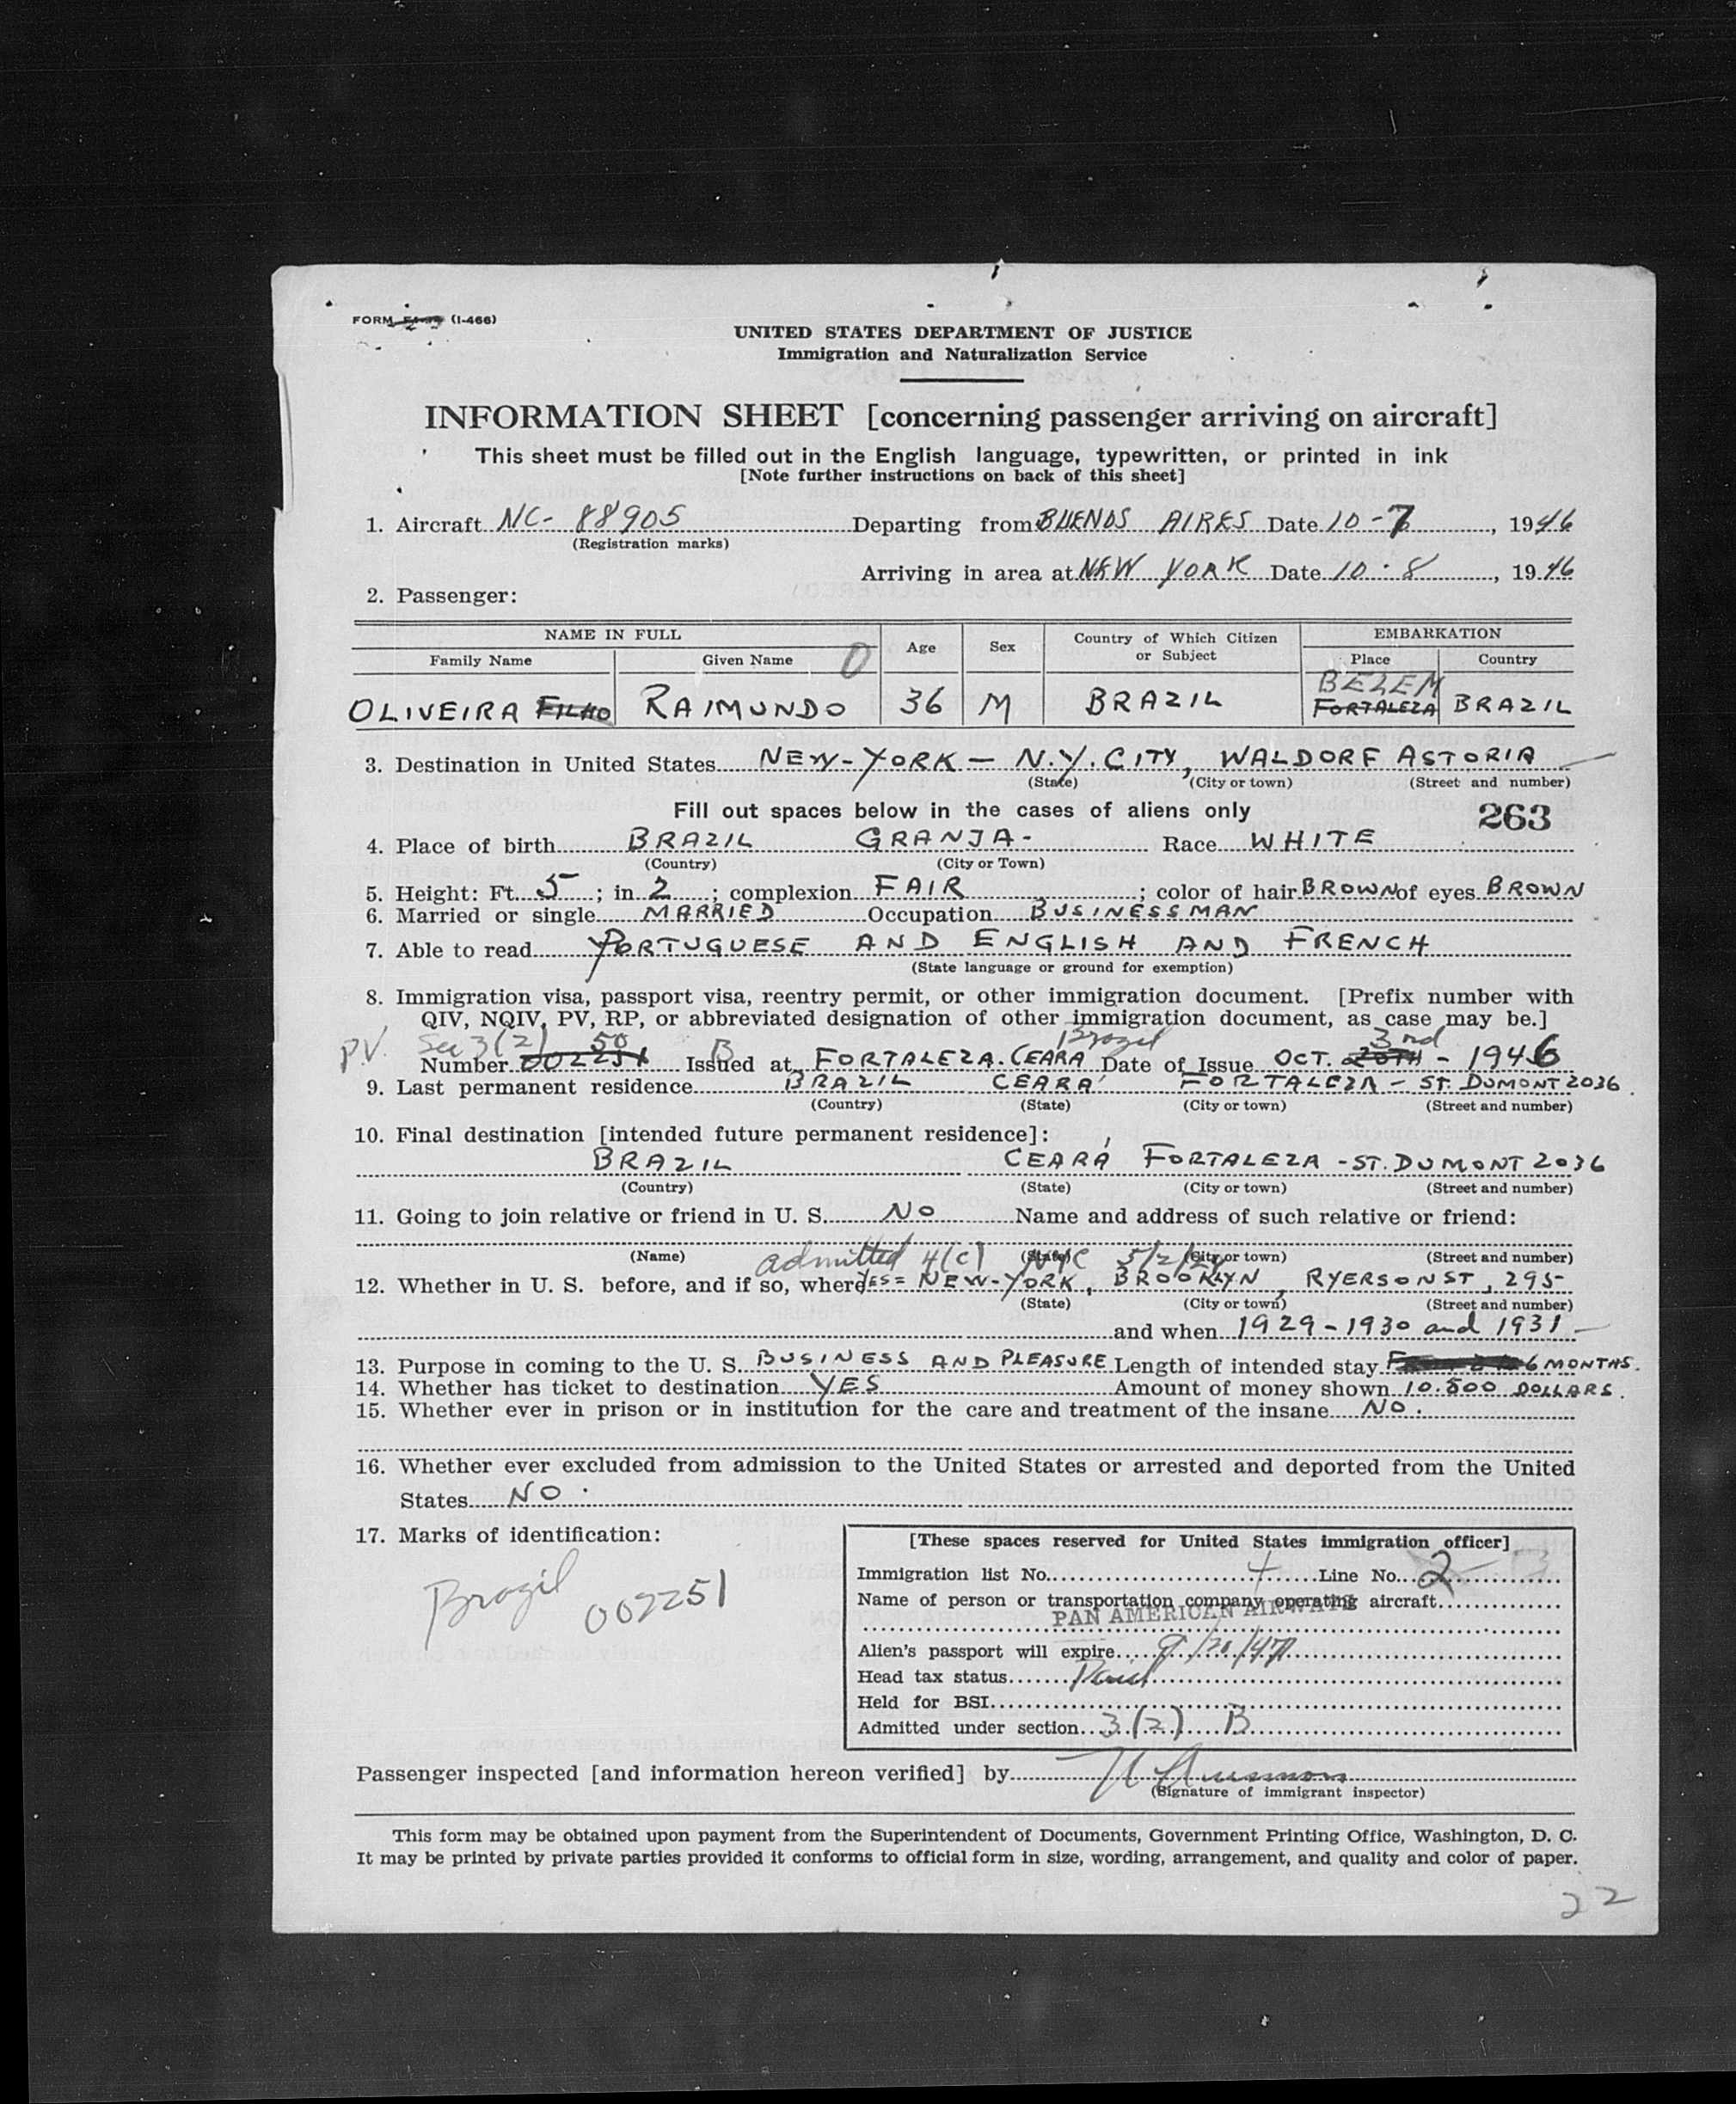 FORM (I-466)
UNITED STATES DEPARTMENT OF JUSTICE
Immigration and Naturalization Service
INFORMATION SHEET [concerning passenger arriving on aircraft]
This sheet must be filled out in the English language, typewritten, or printed in ink
[Note further instructions on back of this sheet]
1. Aircraft NC- 88905 Departing from BUENOS AIRES Date 10-7, 1946
(Registration marks)
Arriving in area at NEW YORK Date 10-8, 1946
2. Passenger:
NAME IN FULL Age Sex Country of Which Citizen or Subject EMBARKATION
Family Name Given Name O Place Country
BELEM
OLIVEIRA FILHO RAIMUNDO 36 M BRAZIL FORTALEZA BRAZIL
3. Destination in United States NEW-YORK - N.Y. CITY, WALDORF ASTORIA
(State) (City or town) (Street and number)
Fill out spaces below in the cases of aliens only 263
4. Place of birth BRAZIL GRANJA- Race WHITE
(Country) (City or Town)
5. Height: Ft. 5; in 2; complexion FAIR; color of hair BROWN of eyes BROWN
6. Married or single MARRIED Occupation BUSINESSMAN
7. Able to read PORTUGUESE AND ENGLISH AND FRENCH
(State language or ground for exemption)
8. Immigration visa, passport visa, reentry permit, or other immigration document. [Prefix number with
QIV, NQIV, PV, RP, or abbreviated designation of other immigration document, as case may be.]
PV. Sec 3(2) 50 B Brazil 3nd
Number 002251 Issued at FORTALEZA. CEARA Date of Issue OCT. 20TH - 1946
9. Last permanent residence BRAZIL CEARÁ FORTALEZA - ST. DUMONT 2036
(Country) (State) (City or town) (Street and number)
10. Final destination [intended future permanent residence]:
BRAZIL CEARÁ FORTALEZA - ST. DUMONT 2036
(Country) (State) (City or town) (Street and number)
11. Going to join relative or friend in U. S. NO Name and address of such relative or friend:
(Name) (State) (City or town) (Street and number)
admitted 4(c) NYC 5/2/29
12. Whether in U. S. before, and if so, where YES = NEW-YORK, BROOKLYN, RYERSON ST, 295-
(State) (City or town) (Street and number)
and when 1929-1930 and 1931
13. Purpose in coming to the U. S. BUSINESS AND PLEASURE Length of intended stay 6 MONTHS.
14. Whether has ticket to destination YES Amount of money shown 10.500 DOLLARS.
15. Whether ever in prison or in institution for the care and treatment of the insane NO.
16. Whether ever excluded from admission to the United States or arrested and deported from the United
States NO.
17. Marks of identification:
Brazil 002251
[These spaces reserved for United States immigration officer]
Immigration list No. 4 Line No. 2
Name of person or transportation company operating aircraft
PAN AMERICAN AIRWAYS
Alien's passport will expire 9/20/47
Head tax status Paid
Held for BSI
Admitted under section 3(2) B
Passenger inspected [and information hereon verified] by
(Signature of immigrant inspector)
This form may be obtained upon payment from the Superintendent of Documents, Government Printing Office, Washington, D. C.
It may be printed by private parties provided it conforms to official form in size, wording, arrangement, and quality and color of paper.
22